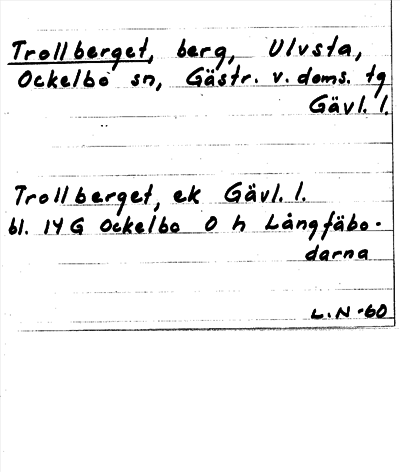 Trollberget, berg, Ulvsta,
Ockelbo sn, Gästr. v. doms. tg
Gävl. l.
Trollberget, ek Gävl. l.
bl. 14 G Ockelbo 0 h Långfäbo-
darna
L.N-60